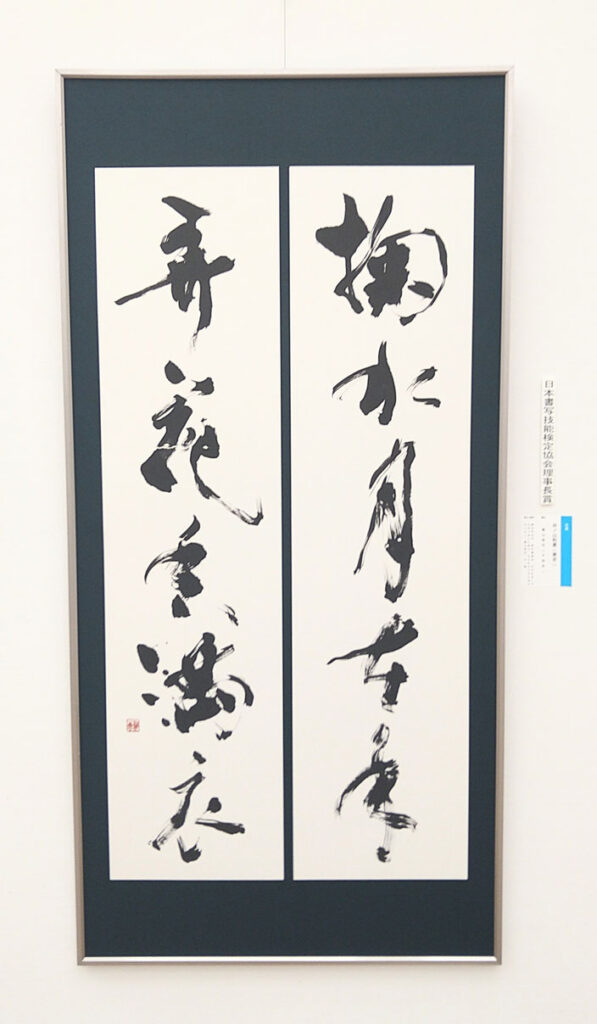 掬水月在手
弄花香満衣
日本書写技能検定協会理事長賞